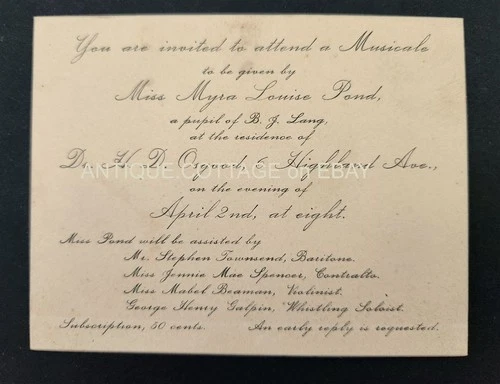 You are invited to attend a Musicale
to be given by
Miss Myra Louise Pond,
a pupil of B. J. Lang,
at the residence of
Dr. H. D. Osgood, 6 Highland Ave.,
ANTIQUE.COTTAGE on EBAY
on the evening of
April 2nd, at eight.
Miss Pond will be assisted by
Mr. Stephen Townsend, Baritone.
Miss Jennie Mae Spencer, Contralto.
Miss Mabel Beaman, Violinist.
George Henry Galpin, Whistling Soloist.
Subscription, 50 cents. An early reply is requested.